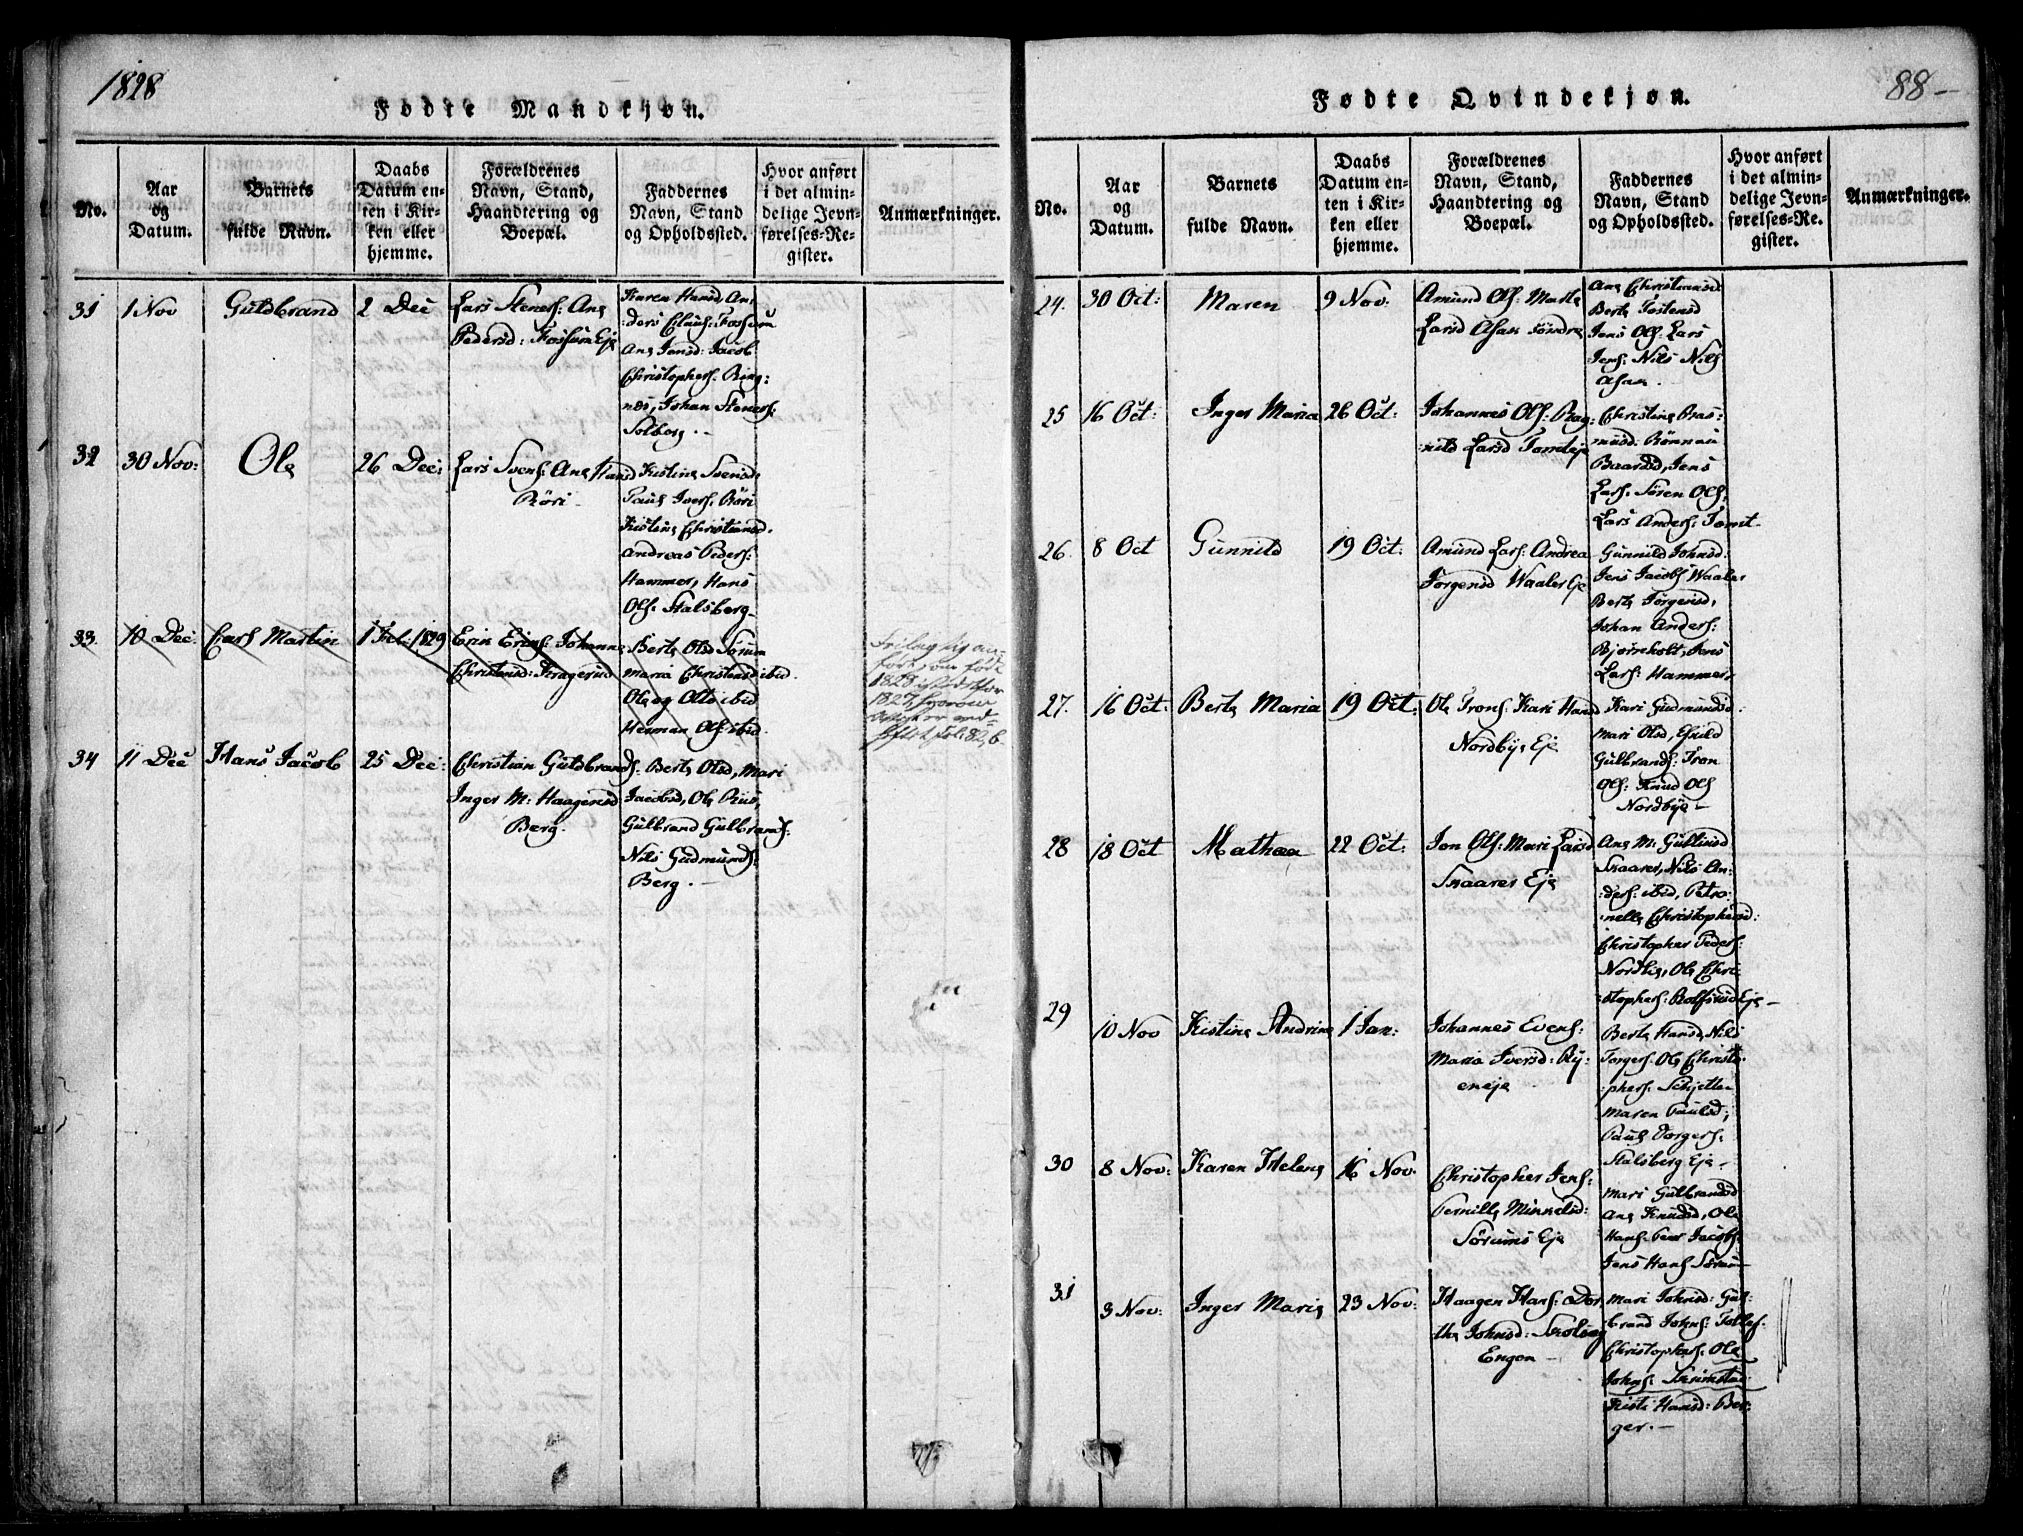 1828
Fødte Mandkjøn.
No.
Aar
og
Datum.
Barnets
fulde Navn.
Daabs
Datum en-
ten i Kir-
ken eller
hjemme.
Forældrenes
Navn, Stand,
Haandtering og
Boepæl.
Faddernes
Navn, Stand
og Opholdssted.
Hvor anført
i det almin-
delige Jevn-
førelses-Re-
gister.
Anmærkninger.
31
1 Nov
Guldbrand
2 Dec
Lars Steners: Ane
Pedersd: Fossum Eje
Karen Hansd, An-
ders Claus: Fossum
Ane Jensd: Jacob
Christophers: Ring-
nes, Johan Steners:
Solberg.-
32
30 Nov:
Ole
26 Dec:
Lars Svens: Ane Hansd
Röri
Kistine Svensd:
Paul Ivers: Röri
Kistine Christiansd.
Andreas Peders:
Hammer, Hans
Ols: Stalsberg-
33.
10 Dec
Carl Martin
1 Feb: 1829
Christensd: Kragerud
Berte Olsd Sörum
Maria Christensd ibid.
Ole og Olsd ibid
Herman Ols: ibid.
34
11 Dec
Hans Jacob
25 Dec:
Christian Guldbrands:
Inger M: Haagensd
Berg.
Berte Olsd, Mari
Jacobsd, Ole
Gulbrand Gulbrands:
Nils Gudmunds:
Berg.-
88-
Fødte Qvindekjøn.
No.
Aar
og
Datum.
Barnets
fulde Navn.
Daabs
Datum en-
ten i Kir-
ken eller
hjemme.
Forældrenes
Navn, Stand,
Haandtering og
Boepæl.
Faddernes
Navn, Stand
og Opholdssted.
Hvor anført
i det almin-
delige Jevn-
førelses-Re-
gister.
Anmærkninger.
24.
30 Oct:
Maren
9 Nov:
Amund Ols: Marte
Larsd Asak söndre
Ane Christiansd
Berte Tostensd
Jens Ols: Lars
Jens: Nils Nils
Asak.
25
16 Oct:
Inger Maria
26 Oct:
Johannes Ols: Rag-
nild Larsd Tomt eje
Christine Ras-
musd: Rönnau
Baardsd, Jens
Lars: Sören Ols:
Lars Anders: Tomt-
26.
8 Oct
Gunnild
19 Oct:
Amund Lars: Andrea
Jörgensd Waaler Eje
Gunnild Johnsd:
Jens Jacobs Waaler
Berte Jörgensd,
Johan Anders:
Bjørnholt, Jens
Lars: Hammer.
27.
16 Oct:
Berte Maria
19 Oct:
Ole Trons: Kari Hansd
Nordbye Eje
Kari Gudmundsd.
Mari Olsd,
Gulbrands: Tron
Ols: Knud Ols
Nordbye-
28
18 Oct
Mathea
22 Oct:
Jon Ols: Mari Larsd
Skaarer Eje
Ane M:
Skaarer, Nils An-
ders: ibid, Petro-
nelle Christophersd:
Christopher Peders:
Nordlie, Ole Chri-
stophers: Rolfsrud Eje-
29
10 Nov
Kistine Andrine
1 Jan:
Johannes Evens:
Maria Iversd: Ry-
eneje
Berte Hansd, Nils
Torgers: Ole Christo-
phers: Schjetten
Maren Paulsd,
Paul Torgers:
Stalsberg Eje-
30
8 Nov:
Karen Helene
16 Nov
Christopher Jens:
Pernille Minkelsd:
Sörums Eje
Mari Gulbrandsd
Ane Knudsd, Ole
Hans: Peer Jacobs:
Jens Hans Sörum-
31
3 Nov:
Inger Marie
23 Nov:
Haagen Hans: Dor-
the Johnsd:
Engen-
Mari Johnsd: Gul-
brand Johns: Tollef
Christophers: Ole
Johns: Skrimstad
Kisti Hansd: Ber-
ger.-